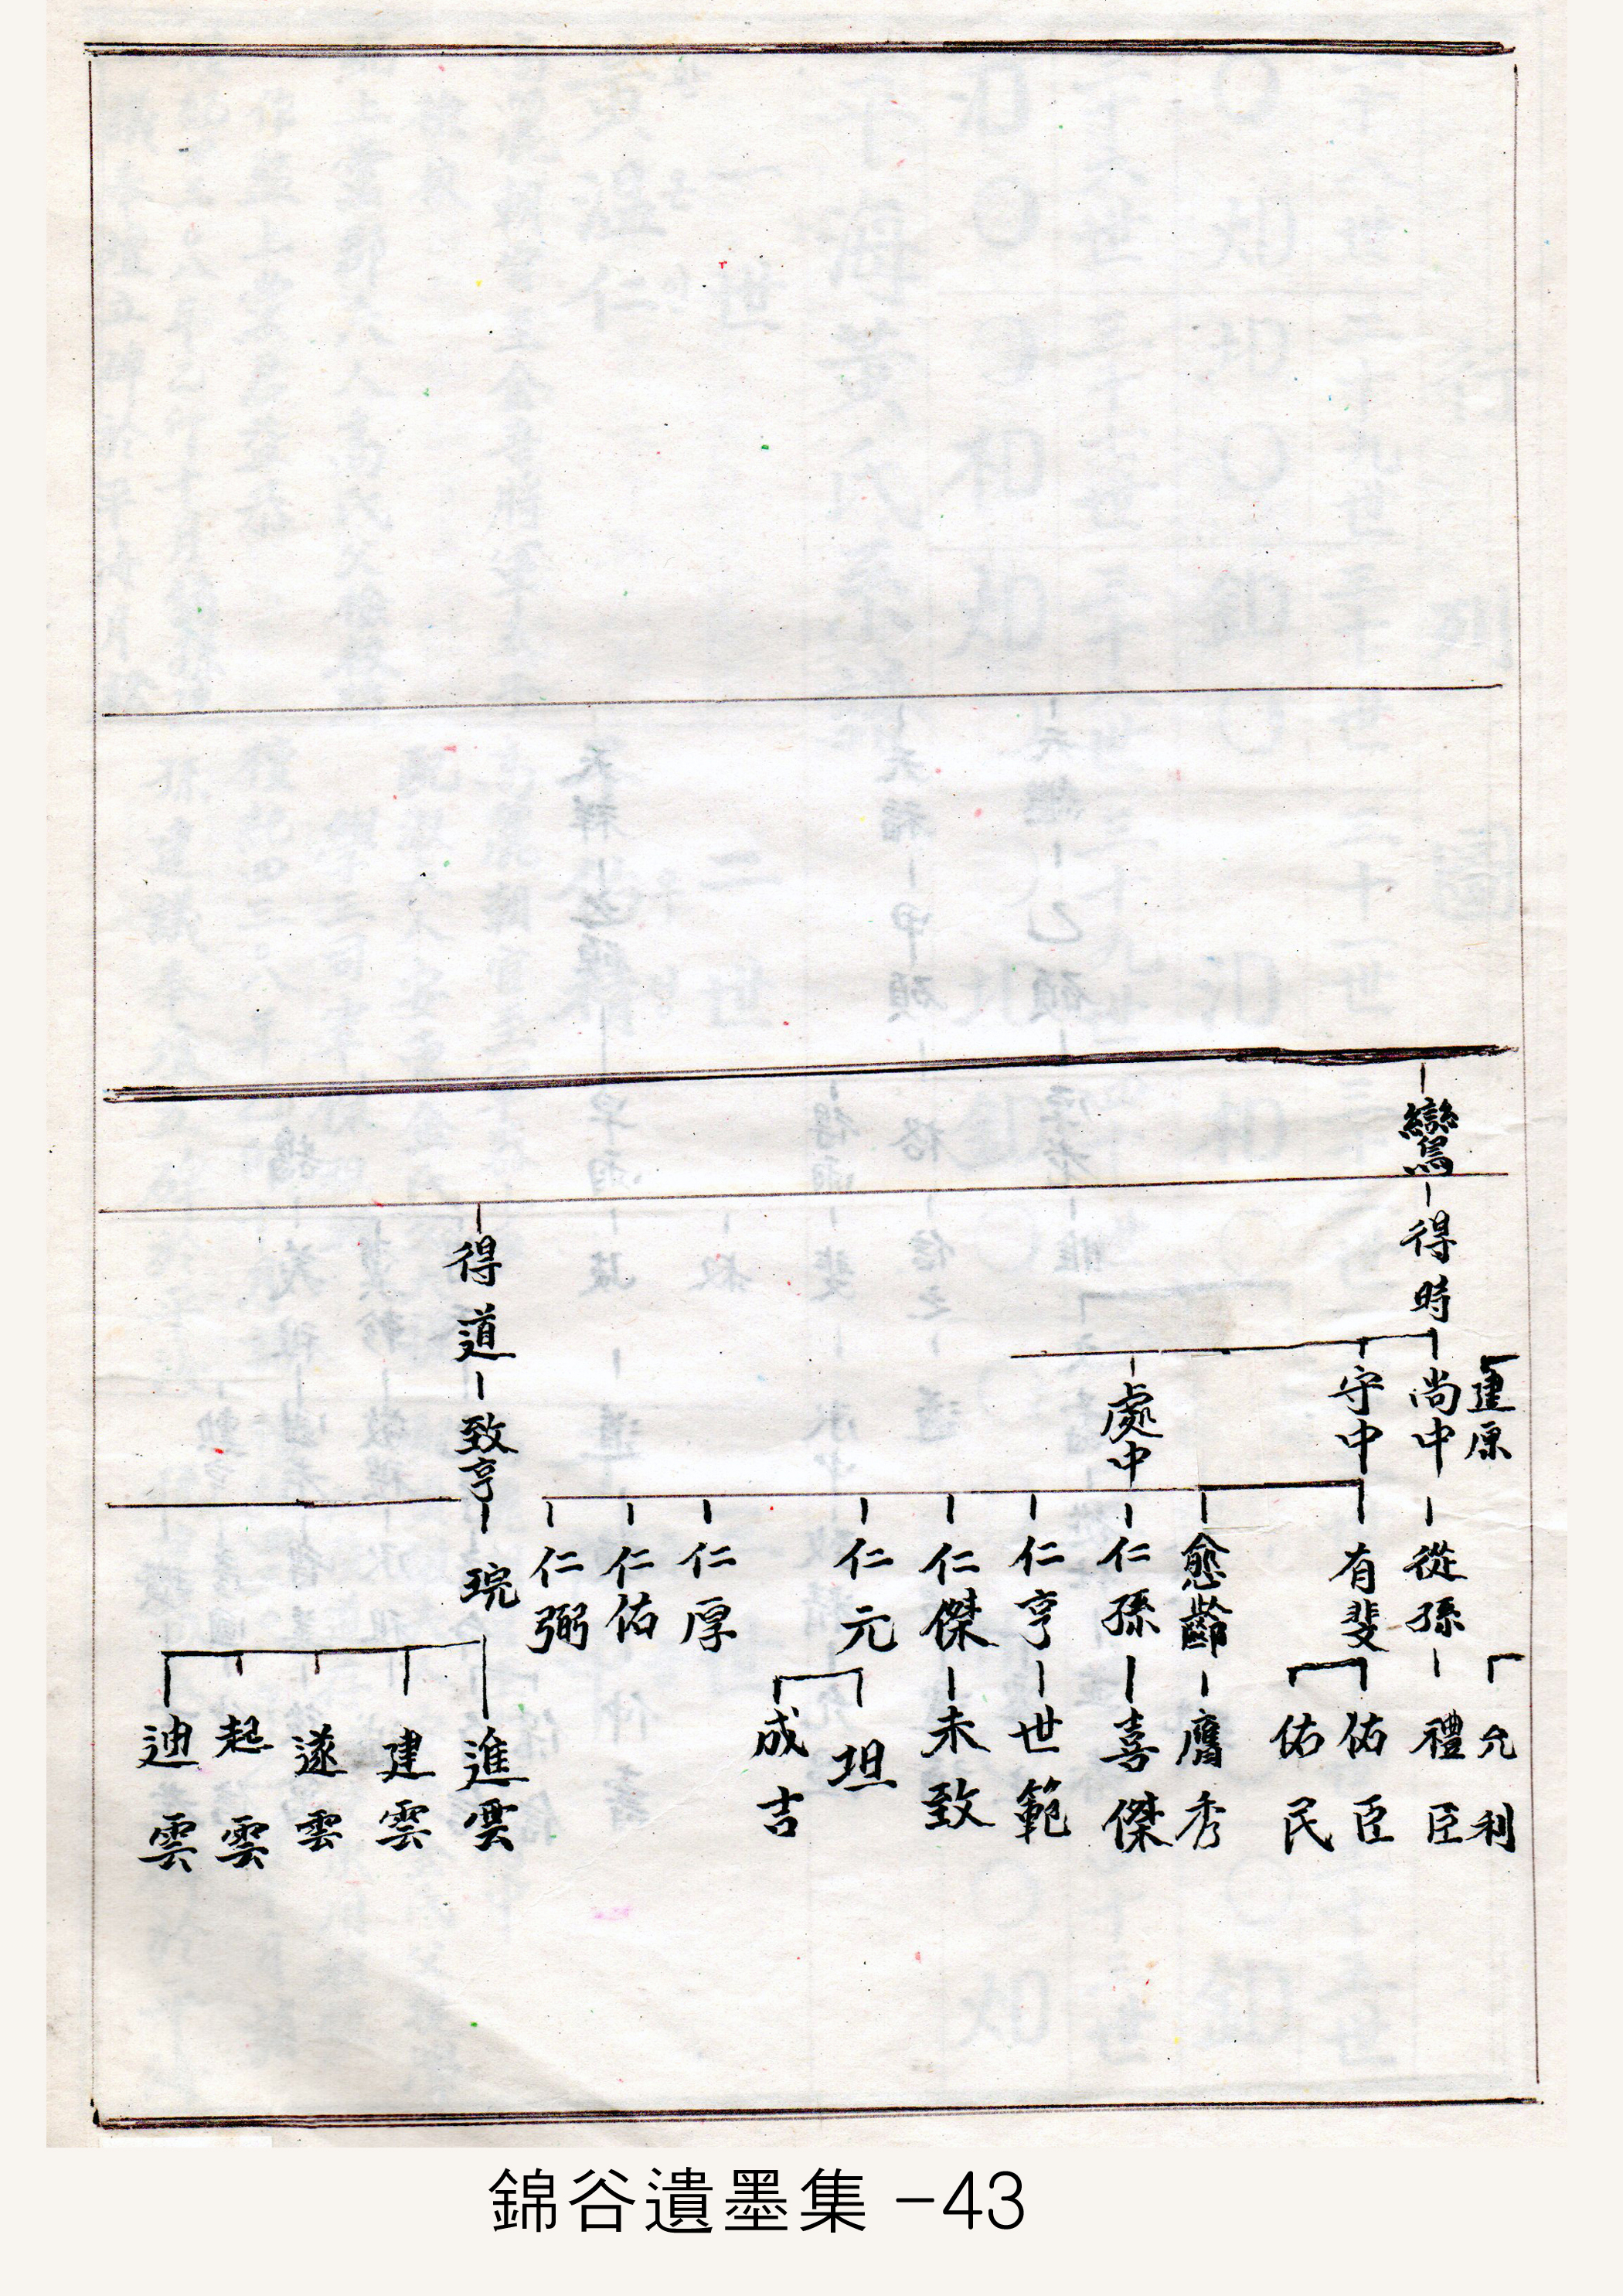 鸞
得時
建原
尚中
守中
處中
得道
致亨
從孫
有斐
愈齡
仁孫
仁亨
仁傑
仁元
仁厚
仁佑
仁弼
琓
允利
禮臣
佑臣
佑民
膺秀
喜傑
世範
未致
坦
成吉
進雲
建雲
遂雲
起雲
迪雲
錦谷遺墨集 -43